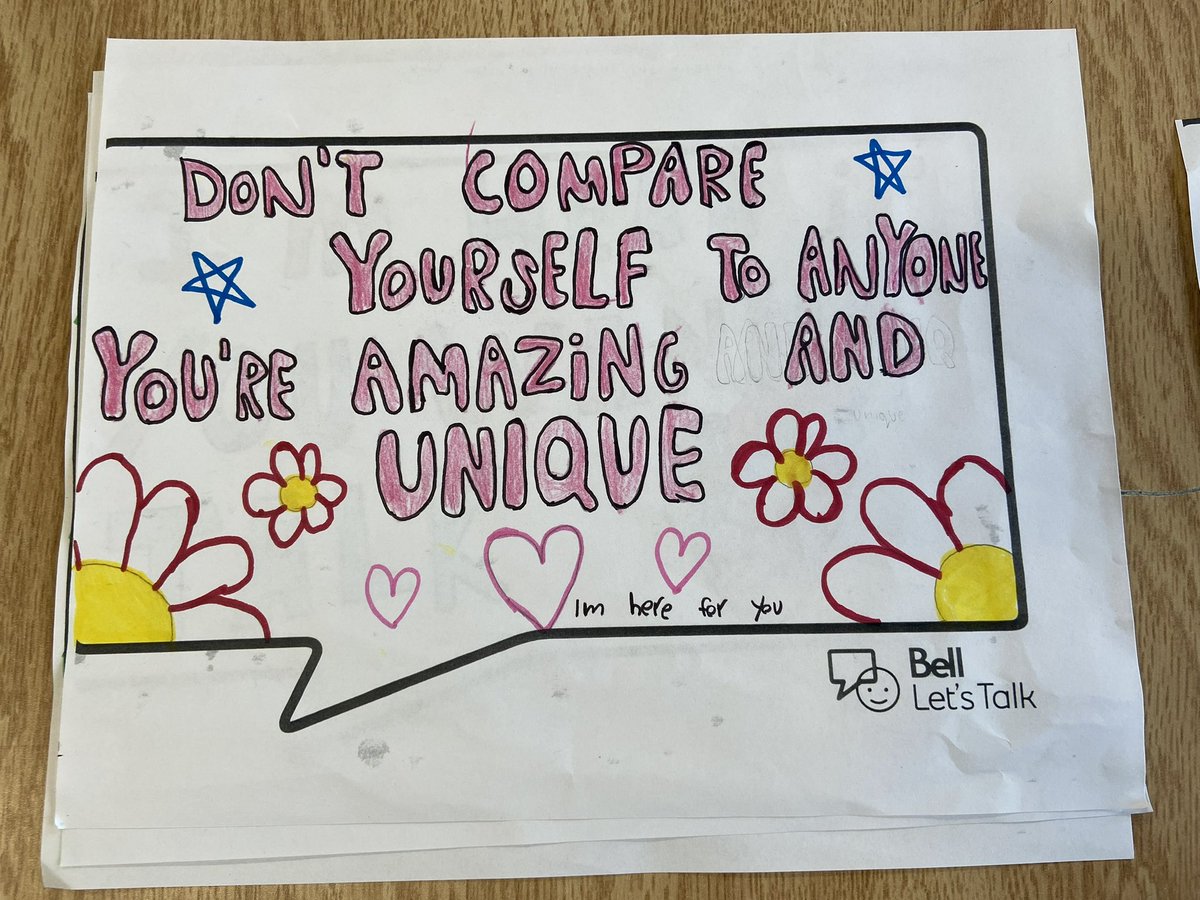 DON'T COMPARE
YOURSELF TO ANYONE
YOU'RE AMAZING AND
UNIQUE
unique
Im here for you
Bell
Let's Talk